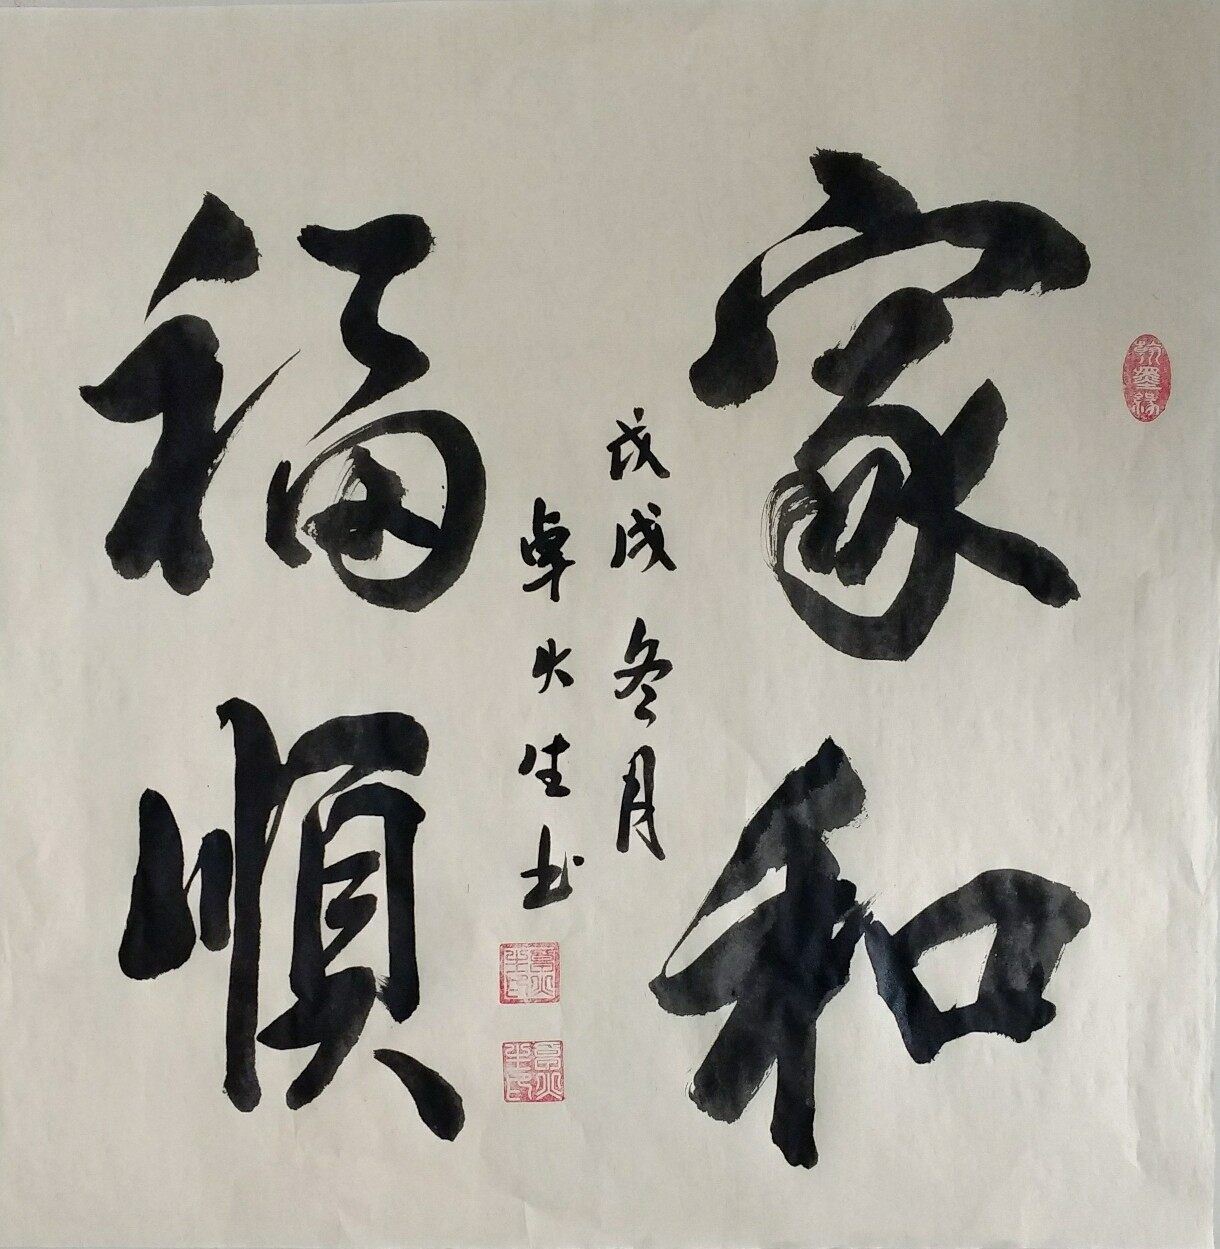 家和
福順
戊戌冬月
卓火生书
翰墨缘